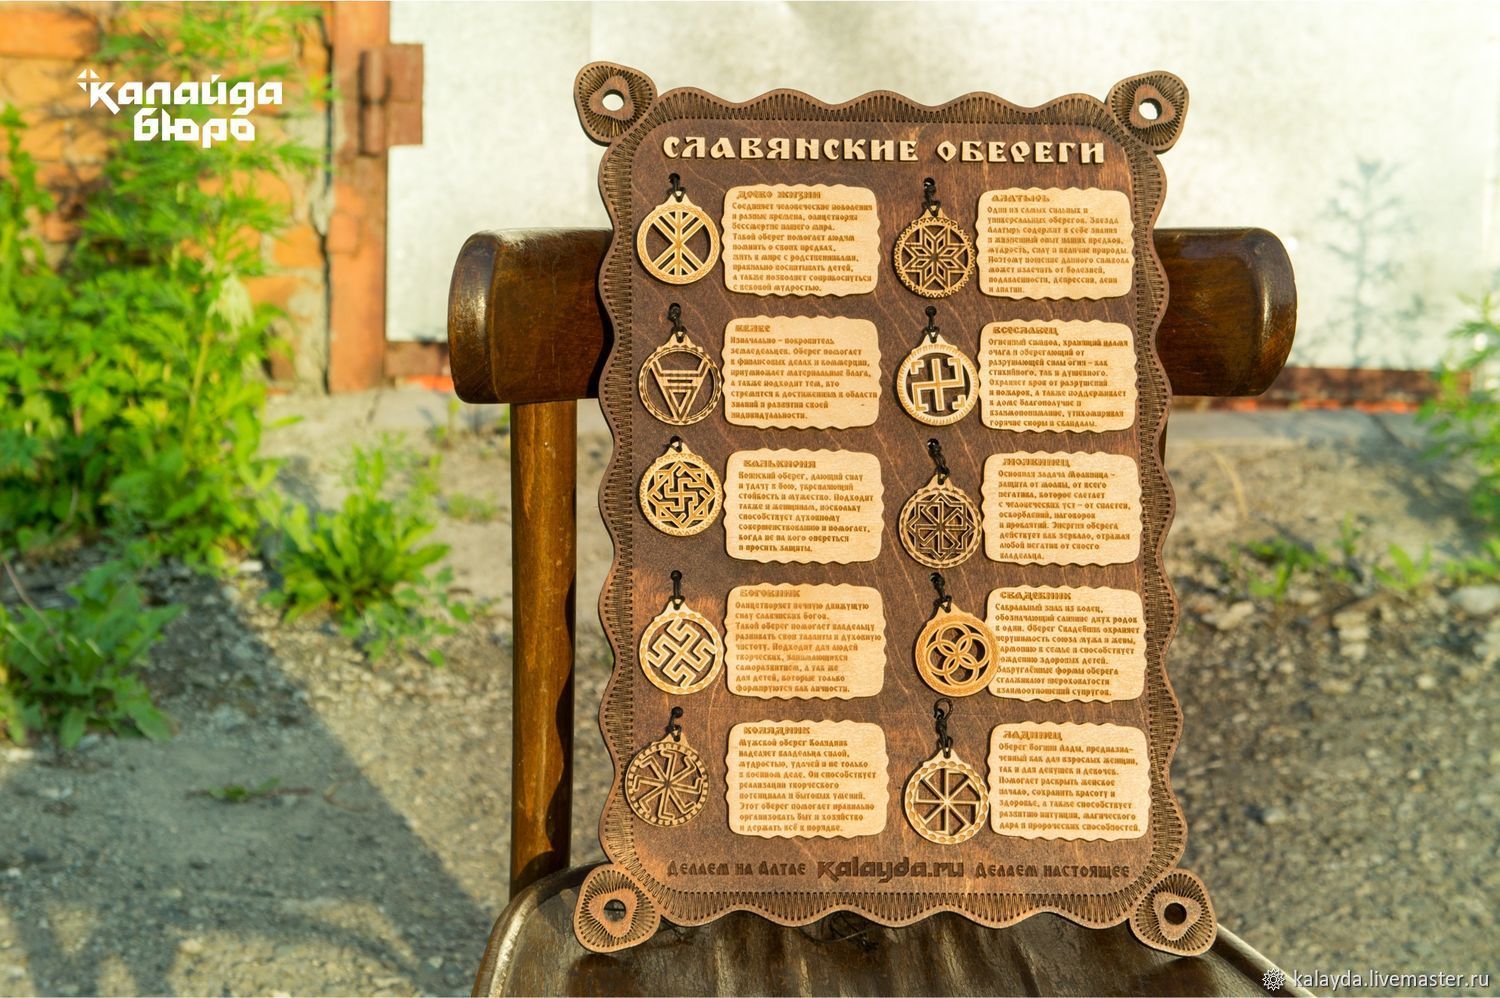 Калайда
бюро
СЛАВЯНСКИЕ ОБЕРЕГИ
ДРЕВО ЖИЗНИ
Соединяет человеческие поколения
и разные времена, олицетворяя
бессмертие нашего мира.
Такой оберег помогает людям
помнить о своих предках,
жить в мире с родственниками,
правильно воспитывать детей,
а также позволяет соприкоснуться
с вековой мудростью.
АЛАТЫРЬ
Один из самых сильных и
универсальных оберегов. Звезда
Алатырь содержит в себе знания
и жизненный опыт наших предков,
мудрость, силу и величие природы.
Поэтому ношение данного символа
может излечить от болезней,
подавленности, депрессии, лени
и апатии.
ВЕЛЕС
Изначально - покровитель
земледельцев. Оберег помогает
в финансовых делах и коммерции,
приумножает материальные блага,
а также подходит тем, кто
стремится к достижениям в области
знаний и развития своей
индивидуальности.
ВСЕСЛАВЕЦ
Огненный символ, хранящий пламя
очага и оберегающий от
разрушающей силы огня - как
стихийного, так и душевного.
Охраняет кров от разрушений
и пожаров, а также поддерживает
в доме благополучие и
взаимопонимание, утихомиривая
горячие споры и скандалы.
ВАЛЬКИРИЯ
Воинский оберег, дающий силу
и удачу в бою, укрепляющий
стойкость и мужество. Подходит
также и женщинам, поскольку
способствует духовному
совершенствованию и помогает,
когда не на кого опереться
и просить защиты.
МОЛВИНЕЦ
Основная задача Молвинца -
защита от молвы, от всего
негатива, которое слетает
с человеческих уст - от сплетен,
оскорблений, наговоров
и проклятий. Энергия оберега
действует как зеркало, отражая
любой негатив от своего
владельца.
БОГОВНИК
Олицетворяет вечную движущую
силу славянских богов.
Такой оберег помогает владельцу
развивать свои таланты и духовную
чистоту. Подходит для людей
творческих, занимающихся
саморазвитием, а так же
для детей, которые только
формируются как личности.
СВАДЕБНИК
Сакральный знак из колец,
обозначающий слияние двух родов
в один. Оберег Свадебник охраняет
нерушимость союза мужа и жены,
гармонию в семье и способствует
рождению здоровых детей.
Закруглённые формы оберега
сглаживают шероховатости
взаимоотношений супругов.
КОЛЯДНИК
Мужской оберег Колядник
наделяет владельца силой,
мудростью, удачей и не только
в военном деле. Он способствует
реализации творческого
потенциала и бытовых умений.
Этот оберег помогает правильно
организовать быт и хозяйство
и держать всё в порядке.
ЛАДИНЕЦ
Оберег богини Лады, предназна-
ченный как для взрослых женщин,
так и для девушек и девочек.
Помогает раскрыть женское
начало, сохранить красоту и
здоровье, а также способствует
развитию интуиции, магического
дара и пророческих способностей.
Делаем на Алтае kalayda.ru Делаем настоящее
kalayda.livemaster.ru